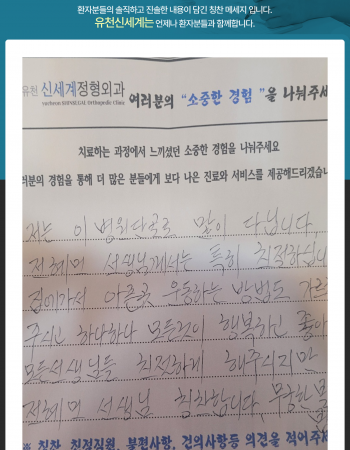 환자분들의 솔직하고 진솔한 내용이 담긴 칭찬 메세지 입니다.
유천신세계는 언제나 환자분들과 함께합니다.
유천 신세계정형외과
yucheon SHINSEGAE Orthopedic Clinic
여러분의 "소중한 경험"을 나눠주세
치료하는 과정에서 느끼셨던 소중한 경험을 나눠주세요
러분의 경험을 통해 더 많은 분들에게 보다 나은 진료와 서비스를 제공해드리겠습니
저는 이 병원 단골로 많이 다닙니다.
전혜미 선생님께서는 특히 친절하십니
집에가서 아픈곳 운동하는 방법도 가르
주시고 하나하나 모든것이 행복하고 좋아
모든선생님들 친절하게 해주시지만
전혜미 선생님 칭찬합니다. 무궁한
※ 칭찬, 친절직원, 불편사항, 건의사항등 의견을 적어주세